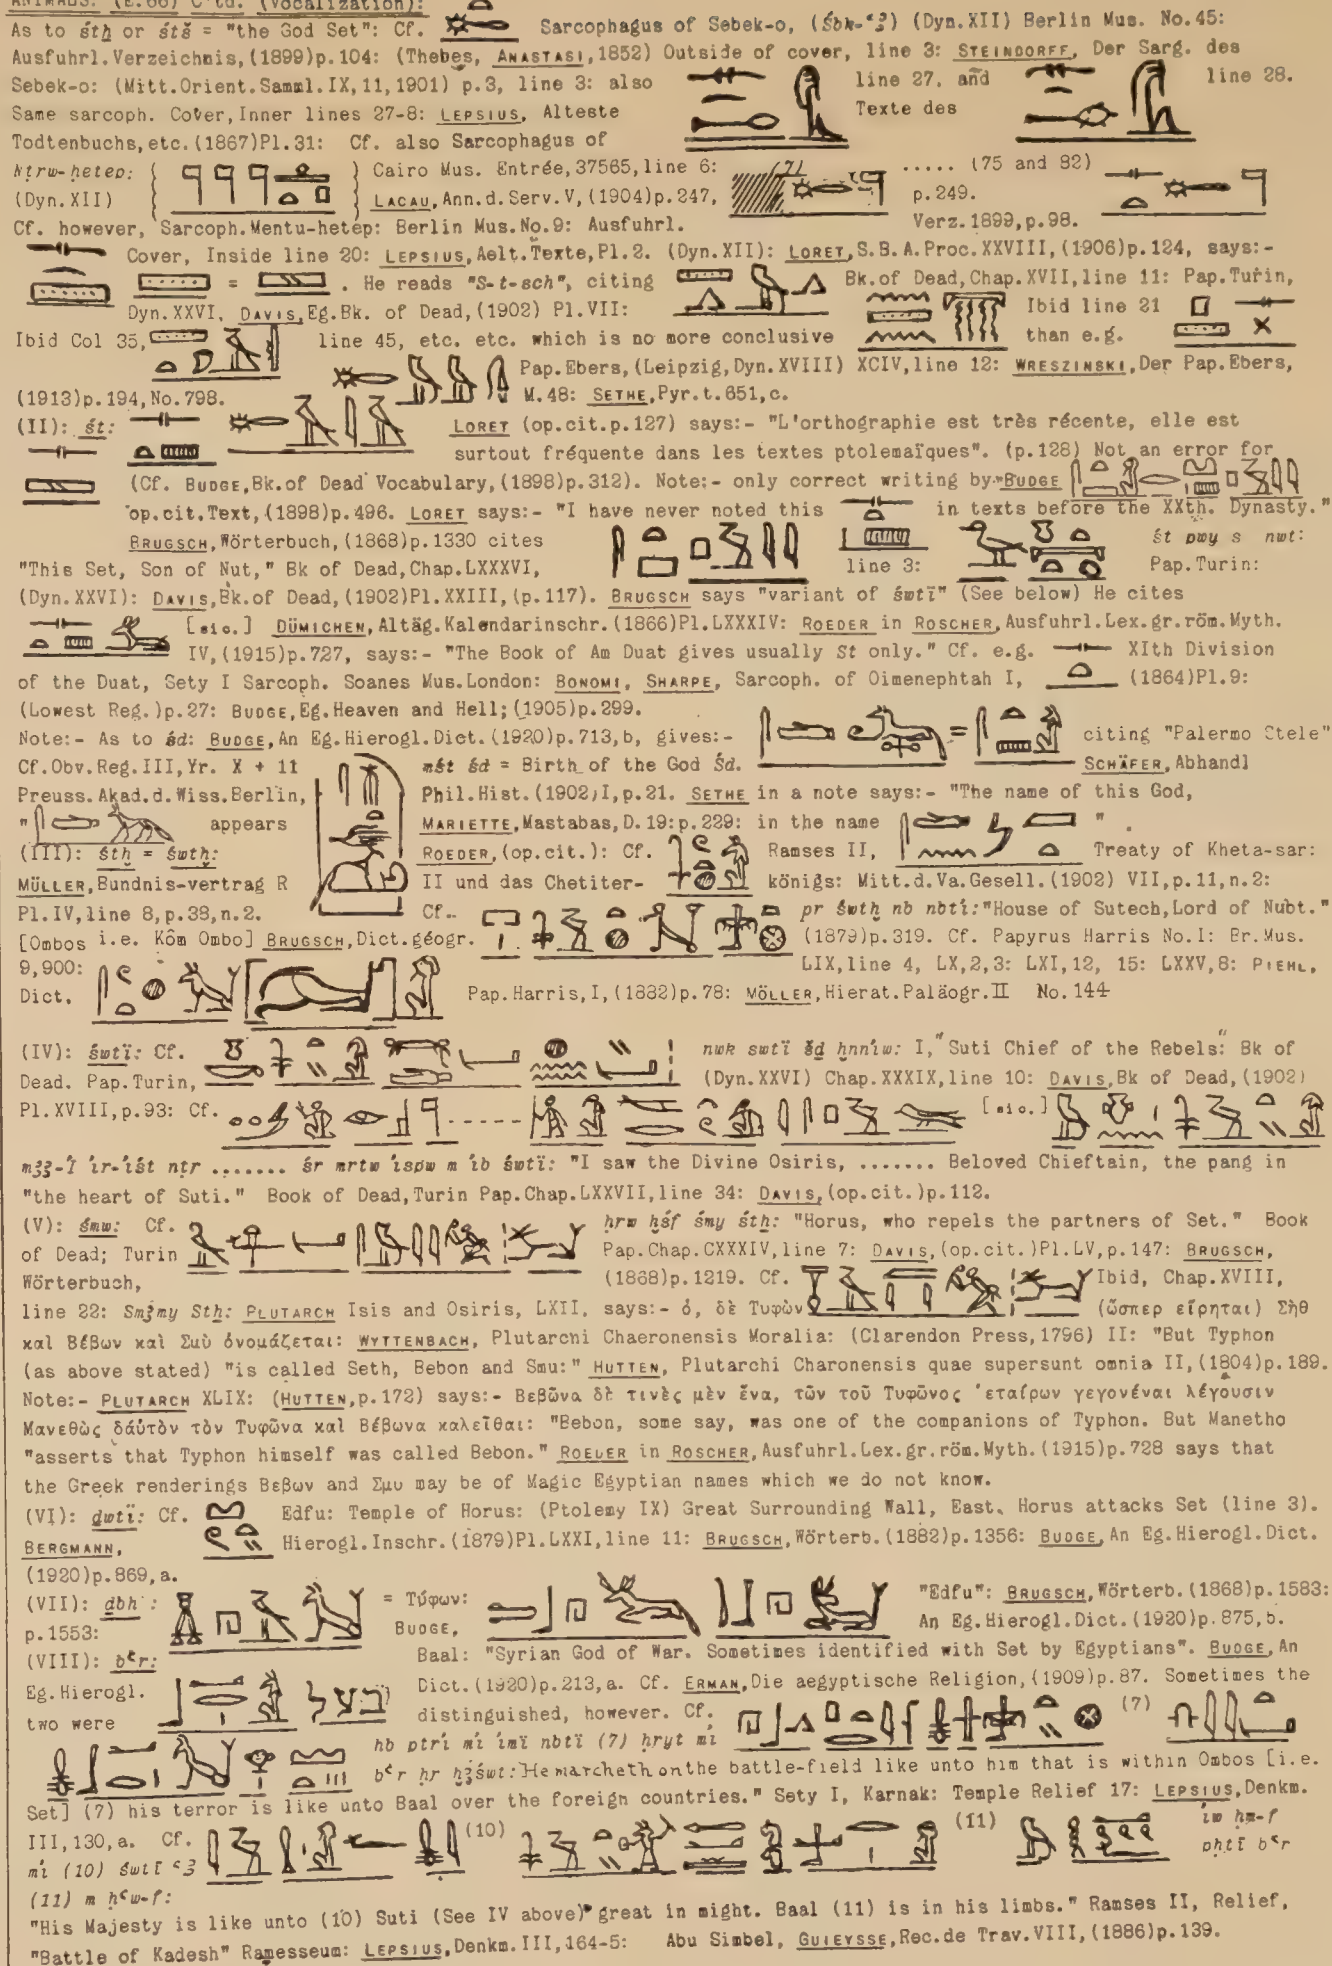 ANIMALS: (E.66) C'td. (Vocalization):
As to śtḫ or śtš = "the God Set": Cf. Sarcophagus of Sebek-o, (śbk-ꜥꜣ) (Dyn.XII) Berlin Mus. No.45:
Ausfuhrl.Verzeichnis,(1899)p.104: (Thebes, ANASTASI,1852) Outside of cover, line 3: STEINDORFF, Der Sarg. des
Sebek-o: (Mitt.Orient.Samml.IX,11,1901) p.3, line 3: also line 27. and line 28.
Same sarcoph. Cover,Inner lines 27-8: LEPSIUS, Alteste Texte des
Todtenbuchs,etc.(1867)Pl.31: Cf. also Sarcophagus of
nṯrw-ḥetep: Cairo Mus. Entrée,37565,line 6: (7) ..... (75 and 82)
(Dyn.XII) LACAU,Ann.d.Serv.V,(1904)p.247, p.249.
Cf. however, Sarcoph.Mentu-hetep: Berlin Mus.No.9: Ausfuhrl. Verz.1899,p.98.
Cover, Inside line 20: LEPSIUS,Aelt.Texte,Pl.2. (Dyn.XII): LORET,S.B.A.Proc.XXVIII,(1906)p.124, says:-
= . He reads "S-t-sch", citing Bk.of Dead,Chap.XVII,line 11: Pap.Turin,
Dyn.XXVI, DAVIS,Eg.Bk. of Dead,(1902) Pl.VII: Ibid line 21
Ibid Col 35, line 45, etc. etc. which is no more conclusive than e.g.
Pap.Ebers,(Leipzig,Dyn.XVIII) XCIV,line 12: WRESZINSKI,Der Pap.Ebers,
(1913)p.194,No.798. M.48: SETHE,Pyr.t.651,c.
(II): śt: LORET (op.cit.p.127) says:- "L'orthographie est très récente, elle est
surtout fréquente dans les textes ptolemaïques". (p.128) Not an error for
(Cf. BUDGE,Bk.of Dead Vocabulary,(1898)p.312). Note:- only correct writing by BUDGE
op.cit.Text,(1898)p.496. LORET says:- "I have never noted this in texts before the XXth. Dynasty."
BRUGSCH,Wörterbuch,(1868)p.1330 cites śt pwy s nwt:
"This Set, Son of Nut," Bk of Dead,Chap.LXXXVI, line 3: Pap.Turin:
(Dyn.XXVI): DAVIS,Bk.of Dead,(1902)Pl.XXIII,(p.117). BRUGSCH says "variant of śwtï" (See below) He cites
[sic.] DÜMICHEN,Altäg.Kalendarinschr.(1866)Pl.LXXXIV: ROEDER in ROSCHER,Ausfuhrl.Lex.gr.röm.Myth.
IV,(1915)p.727, says:- "The Book of Am Duat gives usually St only." Cf. e.g. XIth Division
of the Duat, Sety I Sarcoph. Soanes Mus.London: BONOMI, SHARPE, Sarcoph. of Oimenephtah I, (1864)Pl.9:
(Lowest Reg.)p.27: BUDGE,Eg.Heaven and Hell;(1905)p.299.
Note:- As to śd: BUDGE,An Eg.Hierogl.Dict.(1920)p.713,b, gives:- = citing "Palermo Stele"
Cf.Obv.Reg.III,Yr. X + 11 mśt śd = Birth of the God Śd. SCHÄFER,Abhandl
Preuss.Akad.d.Wiss.Berlin, Phil.Hist.(1902)I,p.21. SETHE in a note says:- "The name of this God,
" appears MARIETTE,Mastabas,D.19:p.229: in the name " .
(III): śtḫ = śwtḫ: ROEDER,(op.cit.): Cf. Ramses II, Treaty of Kheta-sar:
MÜLLER,Bundnis-vertrag R II und das Chetiter- königs: Mitt.d.Va.Gesell.(1902) VII,p.11,n.2:
Pl.IV,line 8,p.38,n.2. Cf. pr śwtḫ nb nbtï:"House of Sutech,Lord of Nubt."
[Ombos i.e. Kôm Ombo] BRUGSCH,Dict.géogr. (1879)p.319. Cf. Papyrus Harris No.I: Br.Mus.
9,900: LIX,line 4, LX,2,3: LXI,12, 15: LXXV,8: PIEHL,
Dict. Pap.Harris,I,(1882)p.78: MÖLLER,Hierat.Paläogr.II No.144
(IV): śwtï: Cf. nwk swtï šd ḫnnïw: I, "Suti Chief of the Rebels": Bk of
Dead. Pap.Turin, (Dyn.XXVI) Chap.XXXIX,line 10: DAVIS,Bk of Dead,(1902)
Pl.XVIII,p.93: Cf. ..... [sic.]
mꜣꜣ-ï ir-iśt nṯr ....... śr mrtw ispw m ib śwtï: "I saw the Divine Osiris, ....... Beloved Chieftain, the pang in
"the heart of Suti." Book of Dead,Turin Pap.Chap.LXXVII,line 34: DAVIS,(op.cit.)p.112.
(V): śmw: Cf. ḥrw ḫśf śmy śtḫ: "Horus, who repels the partners of Set." Book
of Dead; Turin Pap.Chap.CXXXIV,line 7: DAVIS,(op.cit.)Pl.LV,p.147: BRUGSCH,
Wörterbuch, (1868)p.1219. Cf. Ibid, Chap.XVIII,
line 22: Smꜣmy Stḫ: PLUTARCH Isis and Osiris, LXII, says:- ὁ, δὲ Τυφὼν (ὥσπερ εἴρηται) Σὴθ
καὶ Βέβων καὶ Σμὺ ὀνομάζεται: WYTTENBACH, Plutarchi Chaeronensis Moralia: (Clarendon Press,1796) II: "But Typhon
(as above stated) "is called Seth, Bebon and Smu:" HUTTEN, Plutarchi Charonensis quae supersunt omnia II,(1804)p.189.
Note:- PLUTARCH XLIX: (HUTTEN,p.172) says:- Βεβῶνα δὲ τινὲς μὲν ἕνα, τῶν τοῦ Τυφῶνος 'εταίρων γεγονέναι λέγουσιν
Μανεθὼς δάὐτὸν τὸν Τυφῶνα καὶ Βέβωνα καλεῖθαι: "Bebon, some say, was one of the companions of Typhon. But Manetho
"asserts that Typhon himself was called Bebon." ROEDER in ROSCHER,Ausfuhrl.Lex.gr.röm.Myth.(1915)p.728 says that
the Greek renderings Βεβων and Σμυ may be of Magic Egyptian names which we do not know.
(VI): ḏwtï: Cf. Edfu: Temple of Horus: (Ptolemy IX) Great Surrounding Wall, East, Horus attacks Set (line 3).
BERGMANN, Hierogl.Inschr.(1879)Pl.LXXI,line 11: BRUGSCH,Wörterb.(1882)p.1356: BUDGE,An Eg.Hierogl.Dict.
(1920)p.869,a.
(VII): ḏbh: = Τύφων: "Edfu": BRUGSCH,Wörterb.(1868)p.1583:
p.1553: BUDGE, An Eg.Hierogl.Dict.(1920)p.875,b.
(VIII): bꜥr: Baal: "Syrian God of War. Sometimes identified with Set by Egyptians". BUDGE,An
Eg.Hierogl. בעל Dict.(1920)p.213,a. Cf. ERMAN,Die aegyptische Religion,(1909)p.87. Sometimes the
two were distinguished, however. Cf. (7)
hb ptrï mi imï nbtï (7) ḥryt mi
bꜥr ḥr ḫꜣśwt: "He marcheth on the battle-field like unto him that is within Ombos [i.e.
Set] (7) his terror is like unto Baal over the foreign countries." Sety I, Karnak: Temple Relief 17: LEPSIUS,Denkm.
III,130,a. Cf. (10) (11) iw ḥm-f
mi (10) śwtï ꜥꜣ pḥtï bꜥr
(11) m ḥꜥw-f:
"His Majesty is like unto (10) Suti (See IV above) great in might. Baal (11) is in his limbs." Ramses II, Relief,
"Battle of Kadesh" Ramesseum: LEPSIUS,Denkm.III,164-5: Abu Simbel, GUIEYSSE,Rec.de Trav.VIII,(1886)p.139.